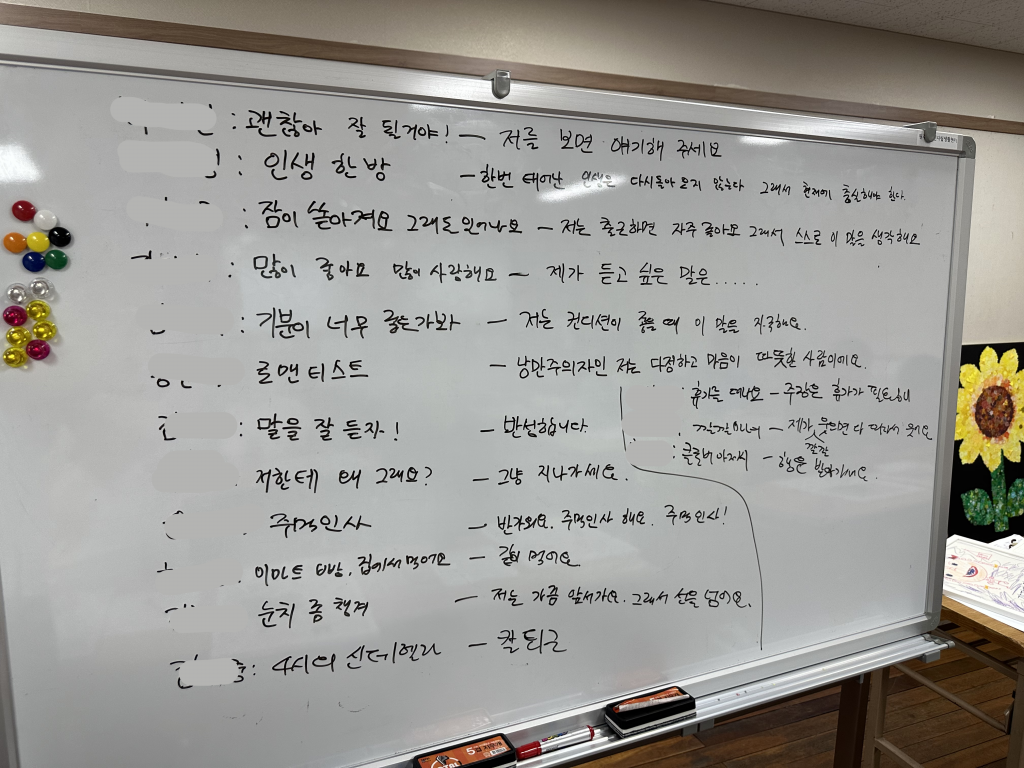 : 괜찮아 잘 될거야! - 저를 보면 얘기해 주세요
: 인생 한방 - 한번 태어난 인생은 다시 돌아오지 않는다 그래서 현재에 충실해야 한다.
: 잠이 쏟아져요 그래도 일어나요 - 저는 출근하면 자주 졸아요 그래서 스스로 이 말은 생각해요
: 많이 좋아요 많이 사랑해요 - 제가 듣고 싶은 말은.....
: 기분이 너무 좋은가봐 - 저는 컨디션이 좋을 때 이 말은 자주해요.
로맨티스트 - 낭만주의자인 저는 다정하고 마음이 따뜻한 사람이에요.
: 말을 잘 듣자! - 반성합니다.
저한테 왜 그래요? - 그냥 지나가세요.
주먹인사 - 반가워요. 주먹인사 해요. 주먹인사!
이마트 빵, 집에서 먹어요 - 같이 먹어요
눈치 좀 챙겨 - 저는 가끔 앞서가요. 그래서 선을 넘어요.
: 4시의 신데렐라 - 칼퇴근
: 휴가를 떠나요 - 주장은 휴가가 필요해
- 제가 웃으면 다 따라서 웃어요
깔깔
: 아저씨 - 받아가세요.